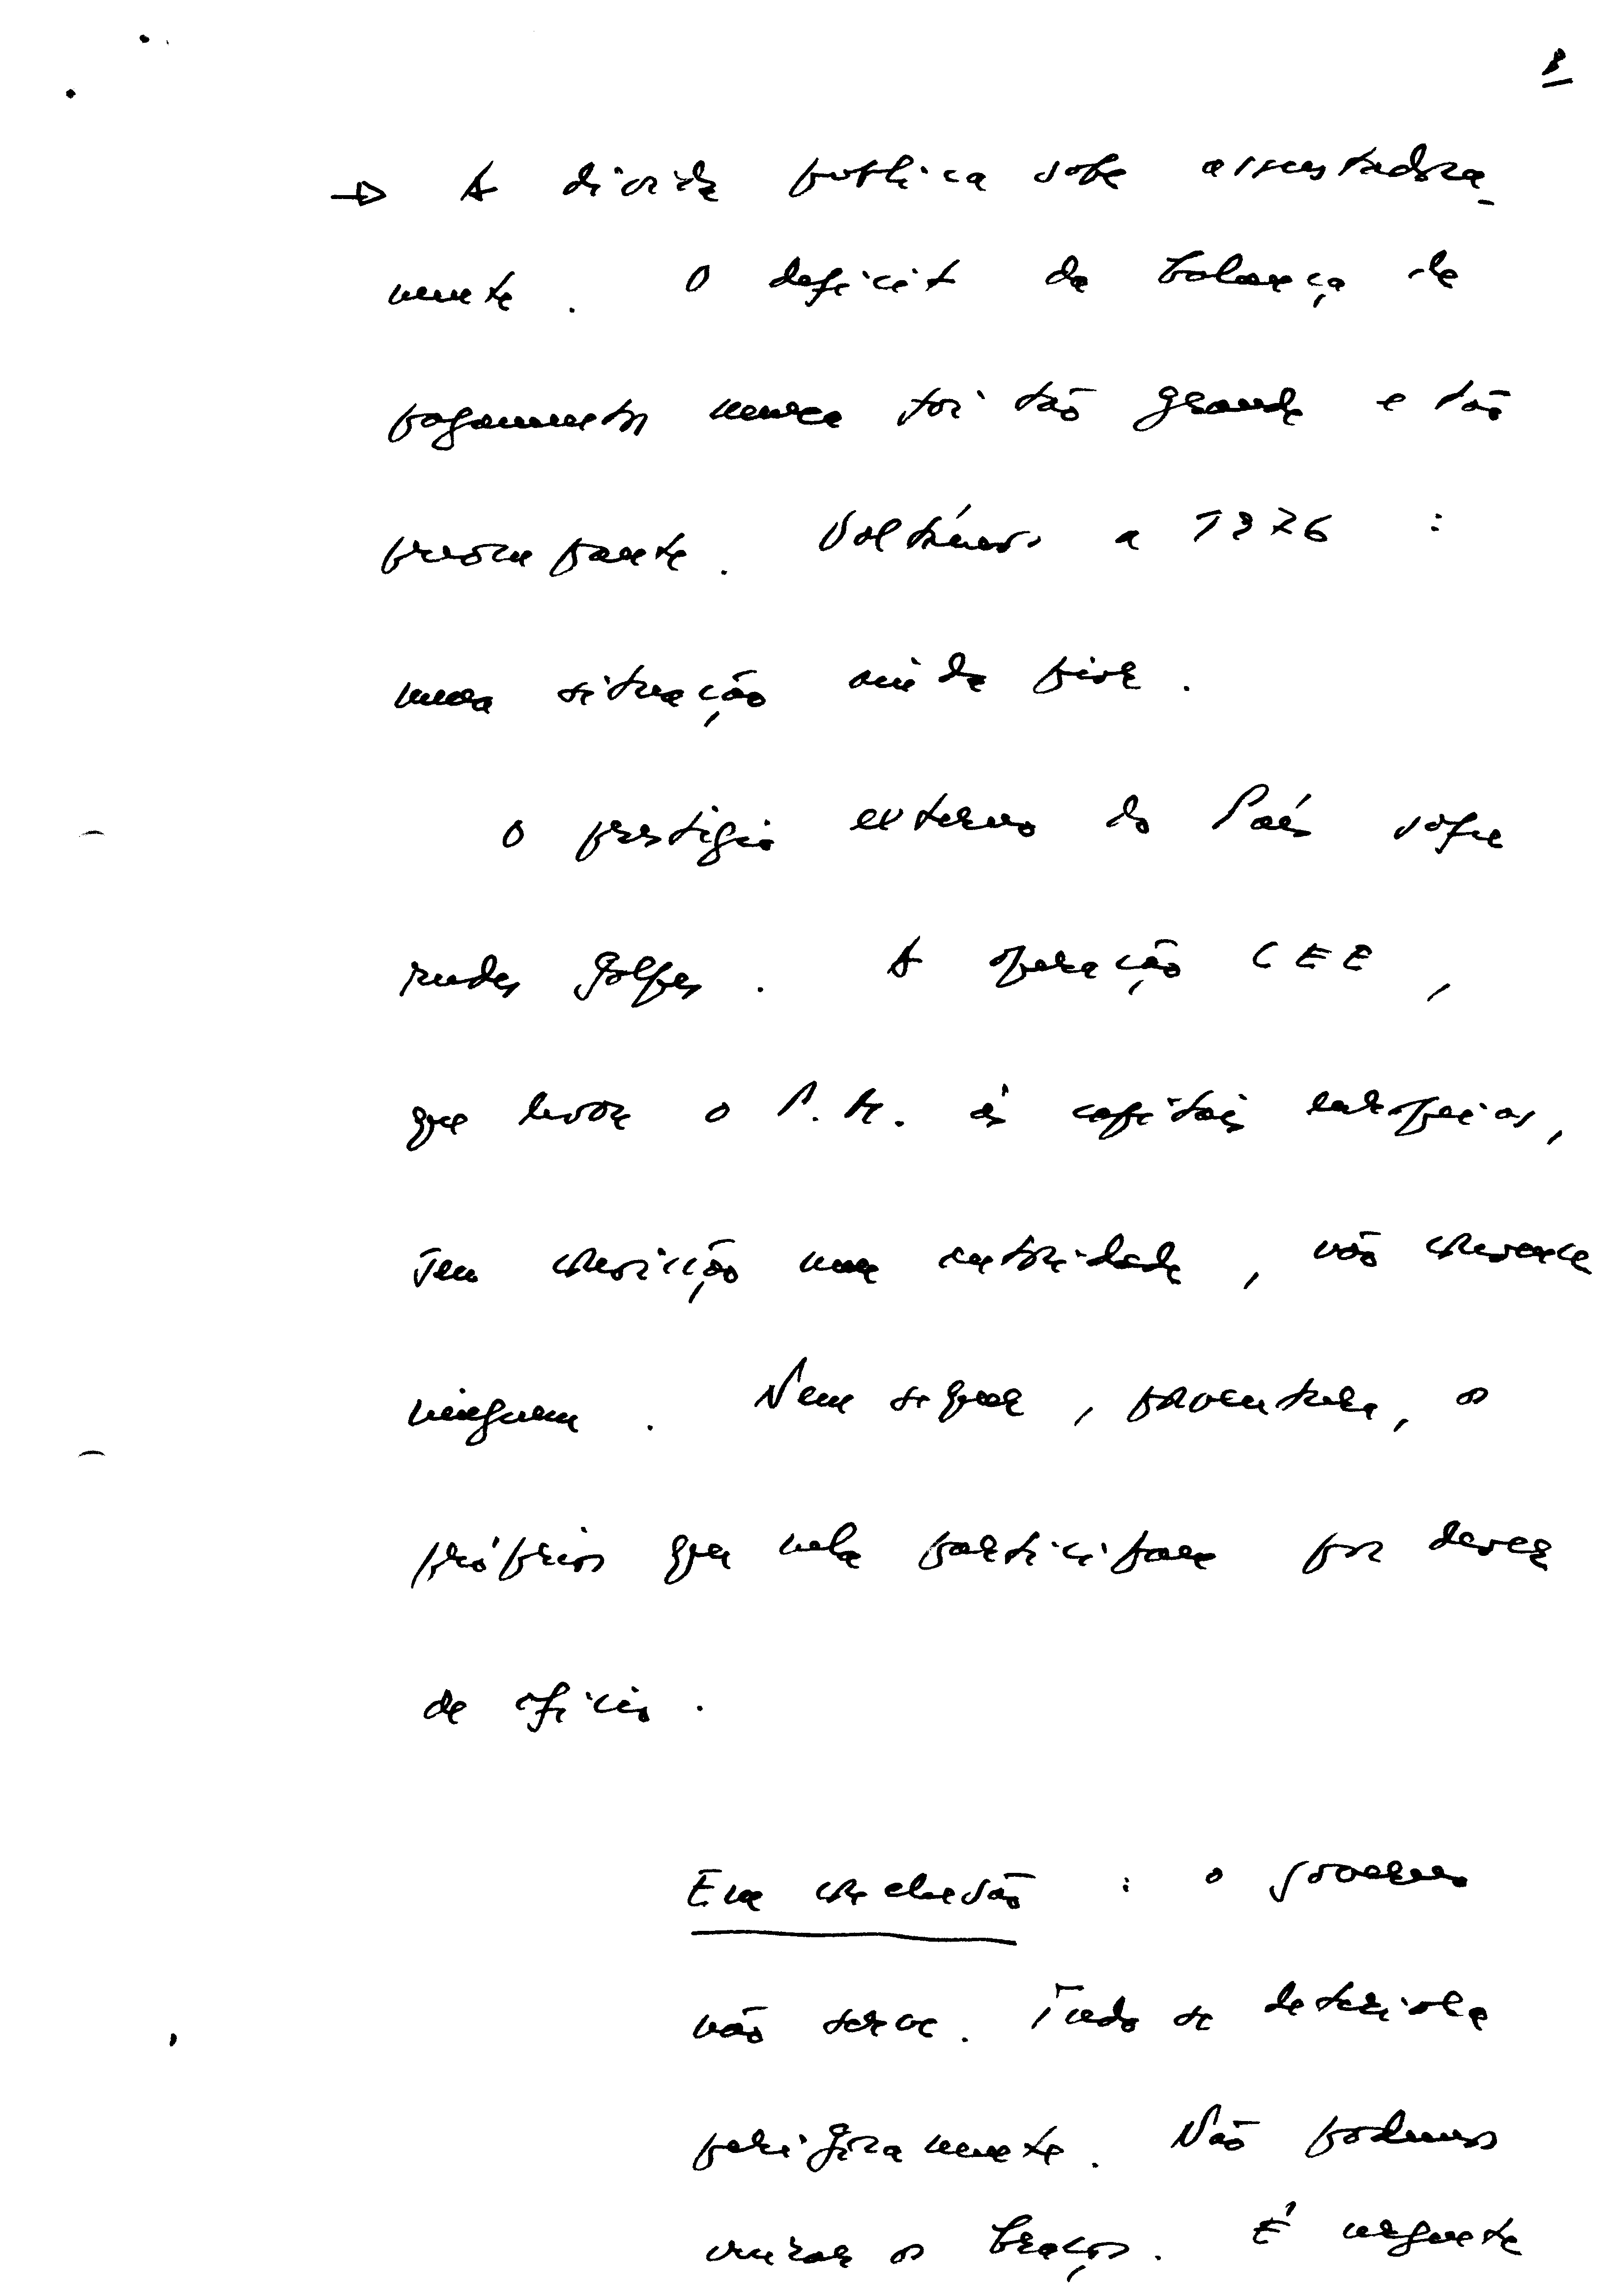 8
→ A dívida pública sobe assustadora-
mente. O deficit da balança de
pagamentos nunca foi tão grande e tão
preocupante. Voltámos a 1976:
numa situação ainda pior.
O prestígio externo do País sofre
rudes golpes. A operação CEE,
que levou o P.M. às capitais europeias,
sem convicção nem autoridade, não convence
ninguem. Nem sequer, porventura, os
próprios que nela participam por dever
de ofício.
Em conclusão: o governo
não serve. Tudo se deteriora
perigosamente. Não podemos
cruzar os braços. É urgente